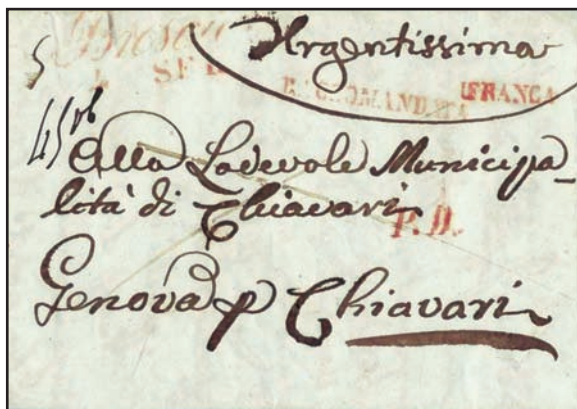 Urgentissima
RACCOMANDATA
FRANCA
Alla Lodevole Municipa-
lità di Chiavari
P.D.
Genova p Chiavari